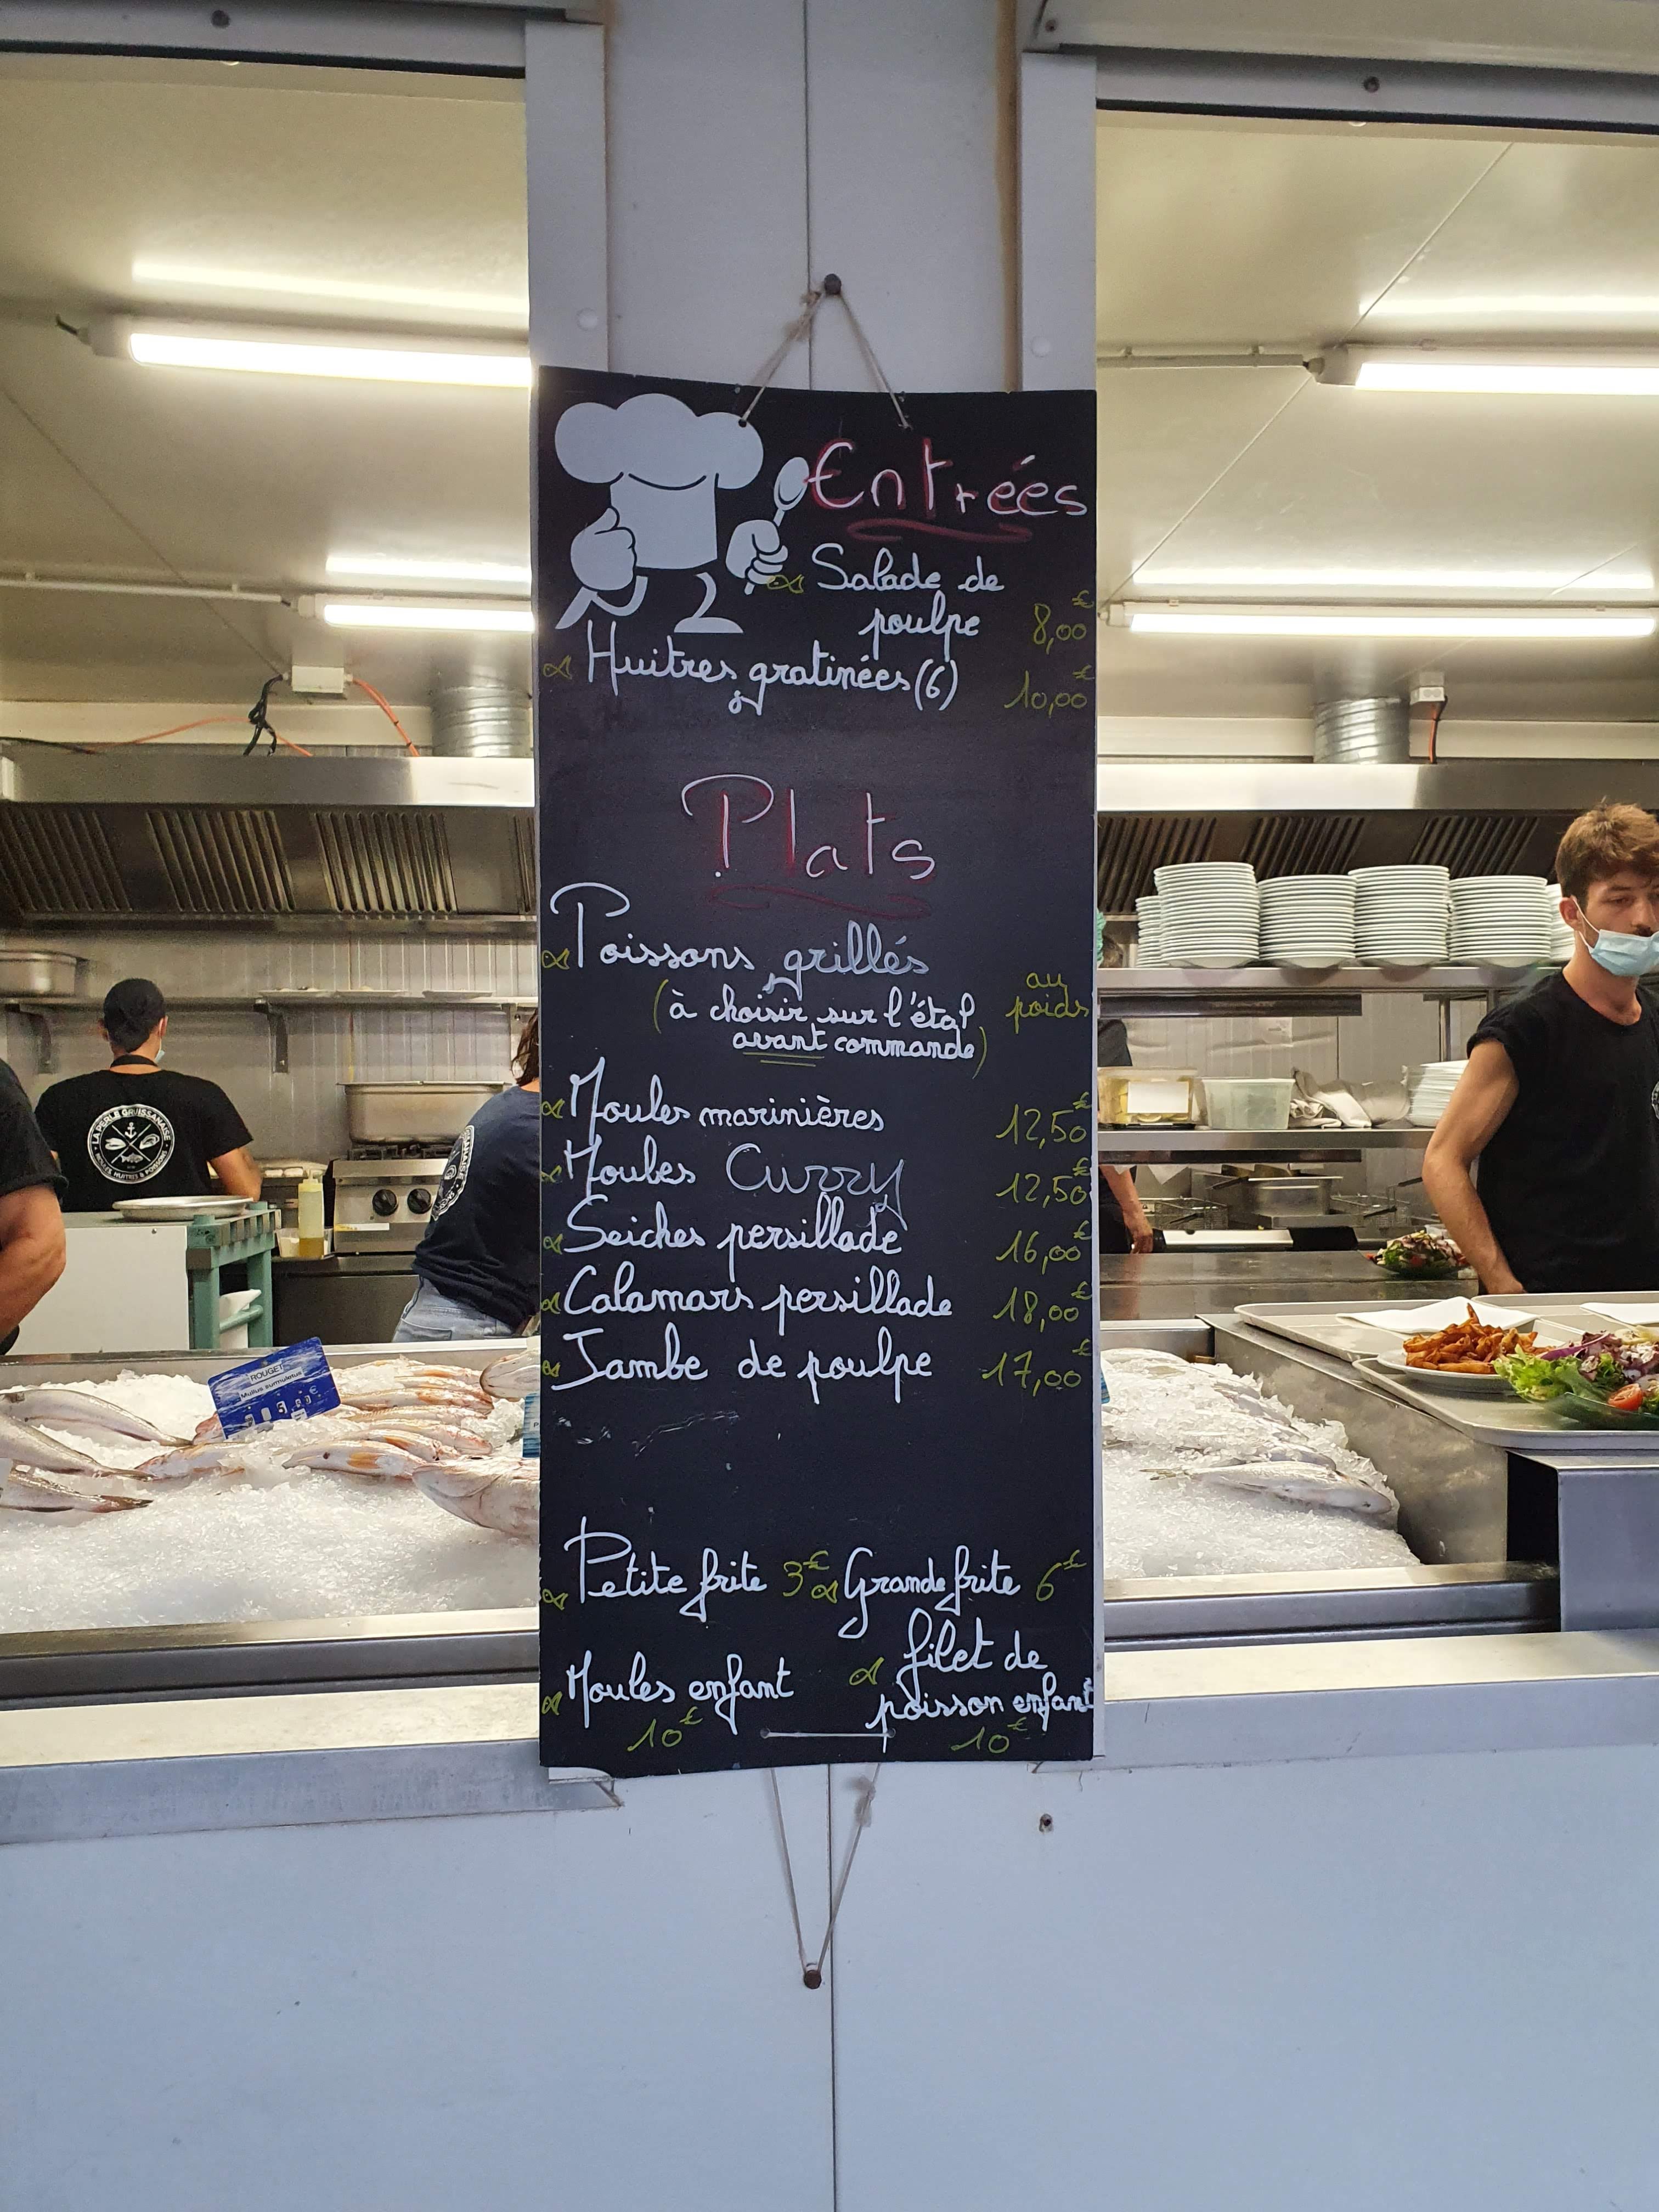 Entrées
Salade de
poulpe 8,00€
Huitres gratinées (6) 10,00€
Plats
Poissons grillés
(à choisir sur l'étal au
avant commande) poids
Moules marinières 12,50€
Moules Curry 12,50€
Seiches persillade 16,00€
Calamars persillade 18,00€
Jambe de poulpe 17,00€
Petite frite 3€ Grande frite 6€
Moules enfant 10€
filet de
poisson enfant
10€
LA PERLE GRUISSANAISE
MOULES, HUITRES & POISSONS
ROUGET
Mullus surmuletus